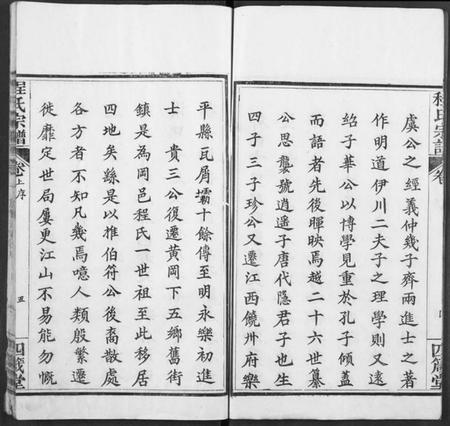 程氏宗譜
卷
四箴堂
虞公之經義仲幾子齊兩進士之著
作明道伊川二夫子之理學則又遠
紹子華公以博學見重於孔子傾蓋
而語者先後暉映焉越二十六世纂
公思龑號逍遥子唐代隱君子也生
四子三子珍公又遷江西饒州府樂
平縣瓦屑壩十餘傳至明永樂初進
士 貴三公復遷黃岡下五鄉舊街
鎮是為岡邑程氏一世祖至此移居
四地矣縣是以推伯符公後裔散處
各方者不知凡幾焉噫人類殷繁遷
徙靡定世局屢更江山不易能勿慨
程氏宗譜
卷上序
五
四箴堂